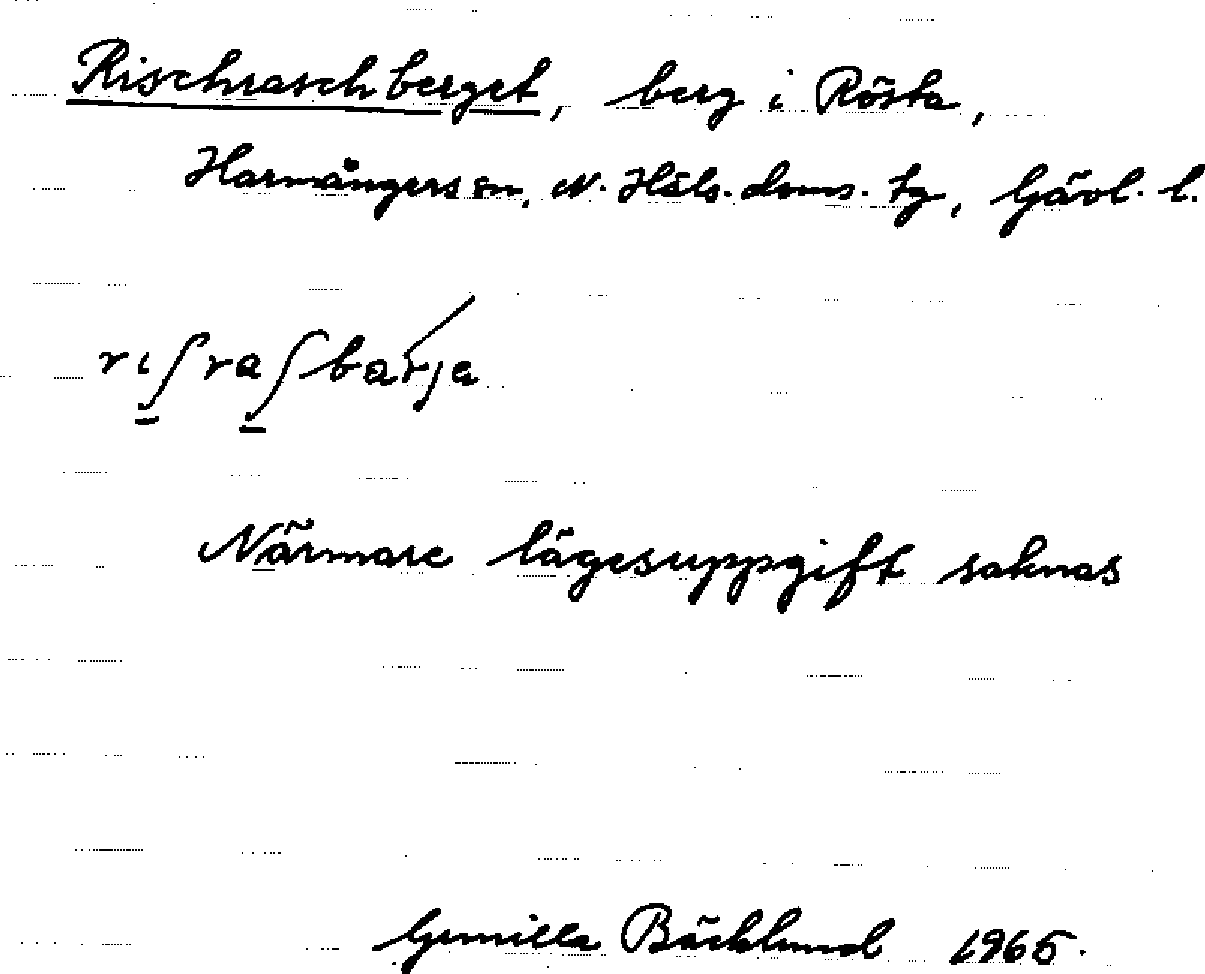 Rischraschberget, berg i Rösta,
Harmångers sn, N. Häls. doms. tg, Gävl. l.
rɩʃraʃbarja
Närmare lägesuppgift saknas
Gunilla Bäcklund 1965.